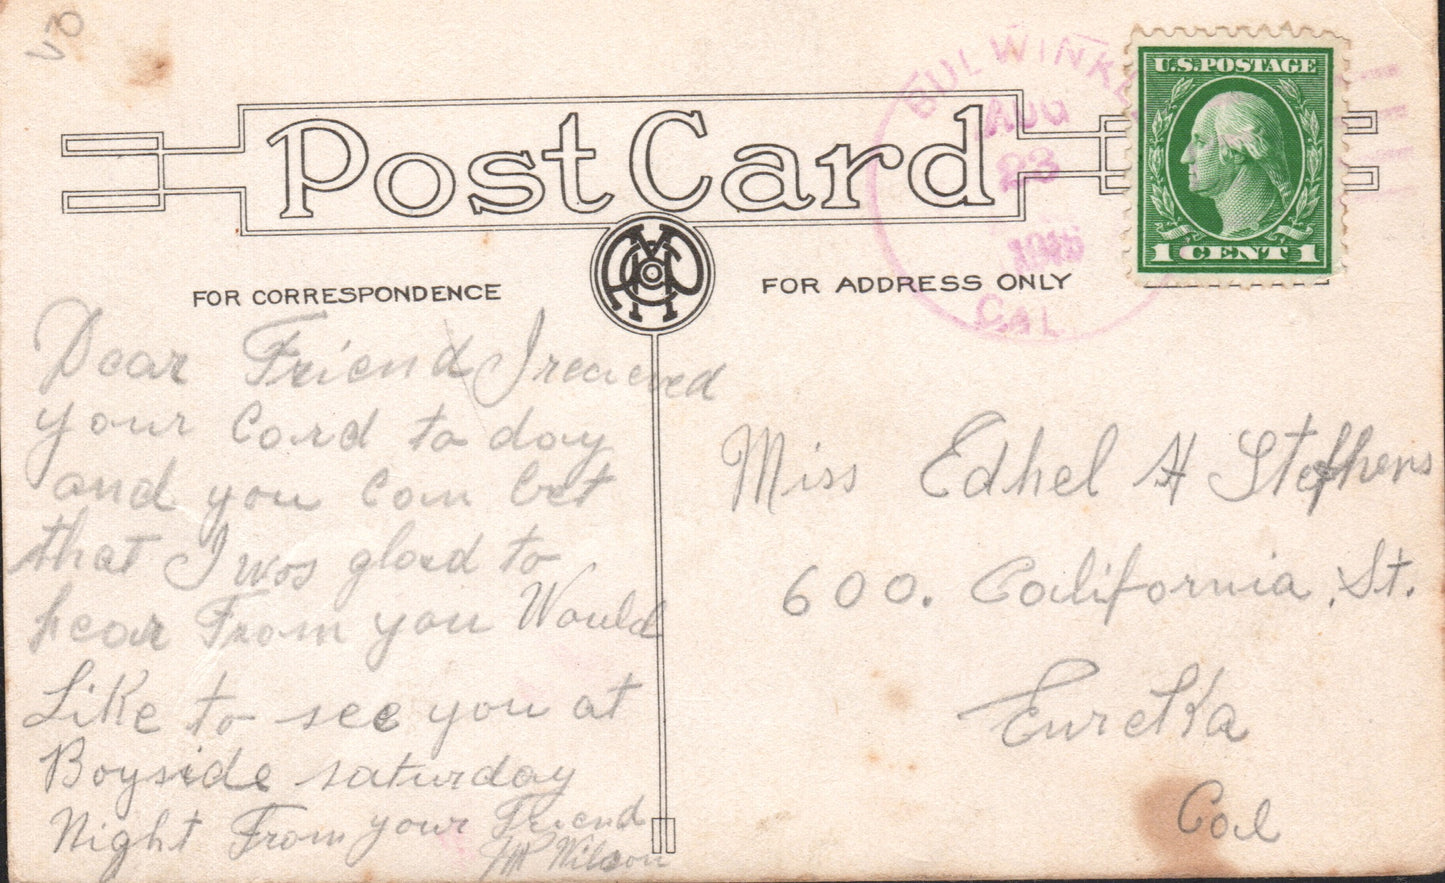 BULWINKLE
AUG
23
CAL
U.S. POSTAGE
1 CENT 1
Post Card
FOR CORRESPONDENCE
FOR ADDRESS ONLY
Dear Friend I receieved
your Card to day
and you Can bet
that I was glad to
hear From you Would
Like to see you at
Bayside saturday
Night From your Friend
Wilson
Miss Edhel H Stephens
600. California St.
Eureka
Cal